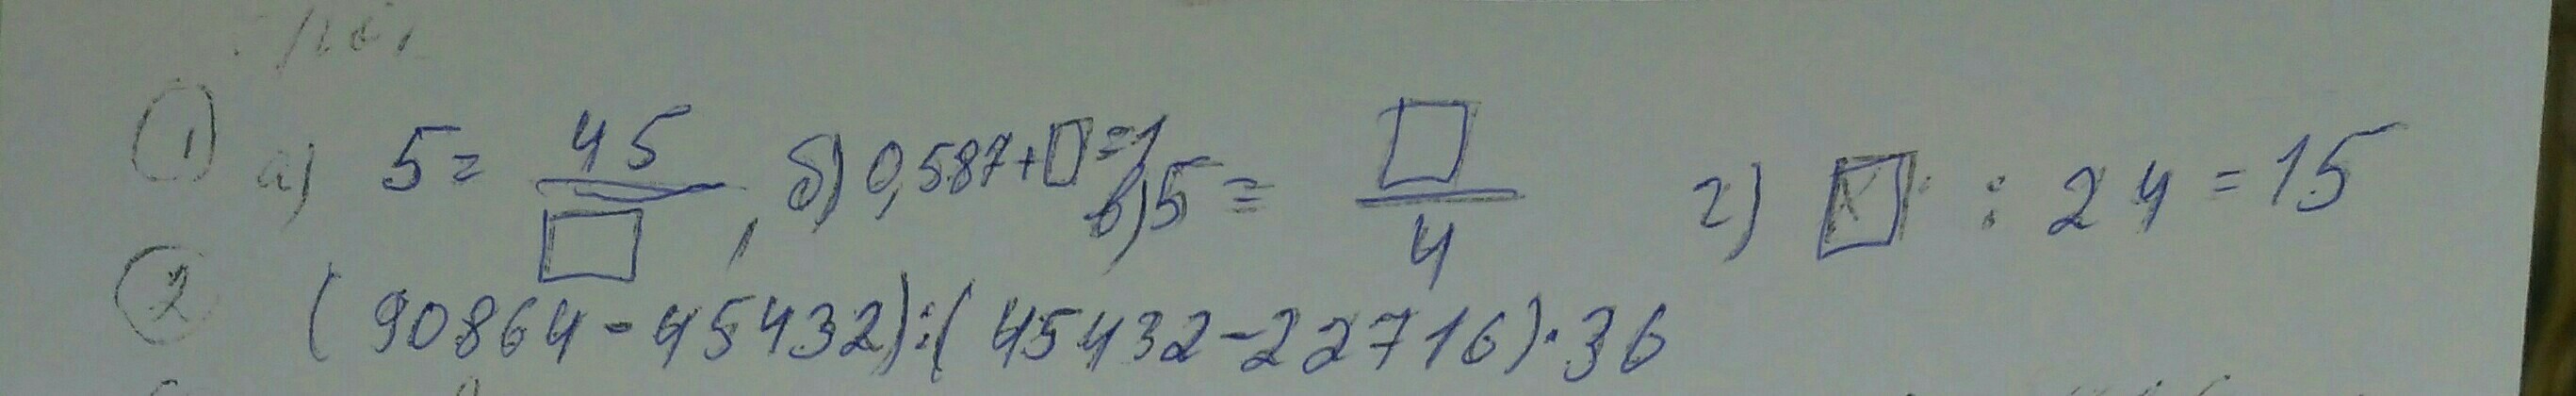 ① а) 5 = 45/□, б) 0,587+□=1 в) 5 = □/4 г) □ : 24 = 15
② (90864-45432):(45432-22716)·36